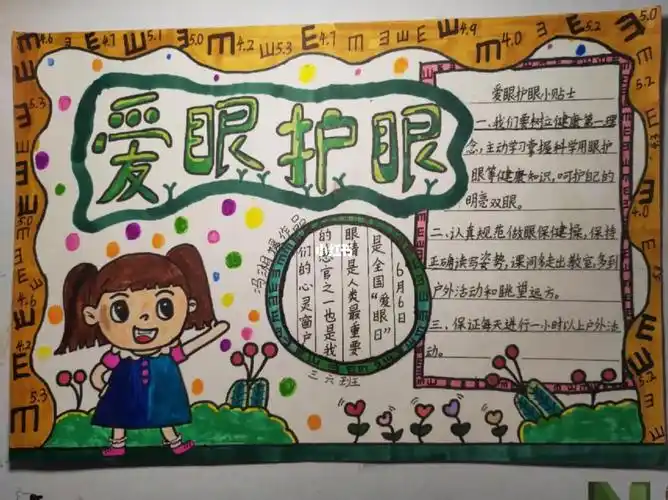 爱眼护眼
爱眼护眼小贴士
一、我们要树立健康第一理
念,主动学习掌握科学用眼护
眼等健康知识,呵护自己的
明亮双眼。
二、认真规范做眼保健操,保持
正确读写姿势,课间多走出教室多到
户外活动和眺望远方。
三、保证每天进行一小时以上户外活
动。
6月6日
是全国“爱眼日”
眼睛是人类最重要
的感官之一也是我
们的心灵窗户
作品
三六班
小红书
4.6
E
4.7
E
5.1
5.0
E
4.2
E
5.3
E
4.7
E
4.9
E
4.0
E
5.2
E
5.0
5.3
5.2
5.0
4.6
4.2
5.3